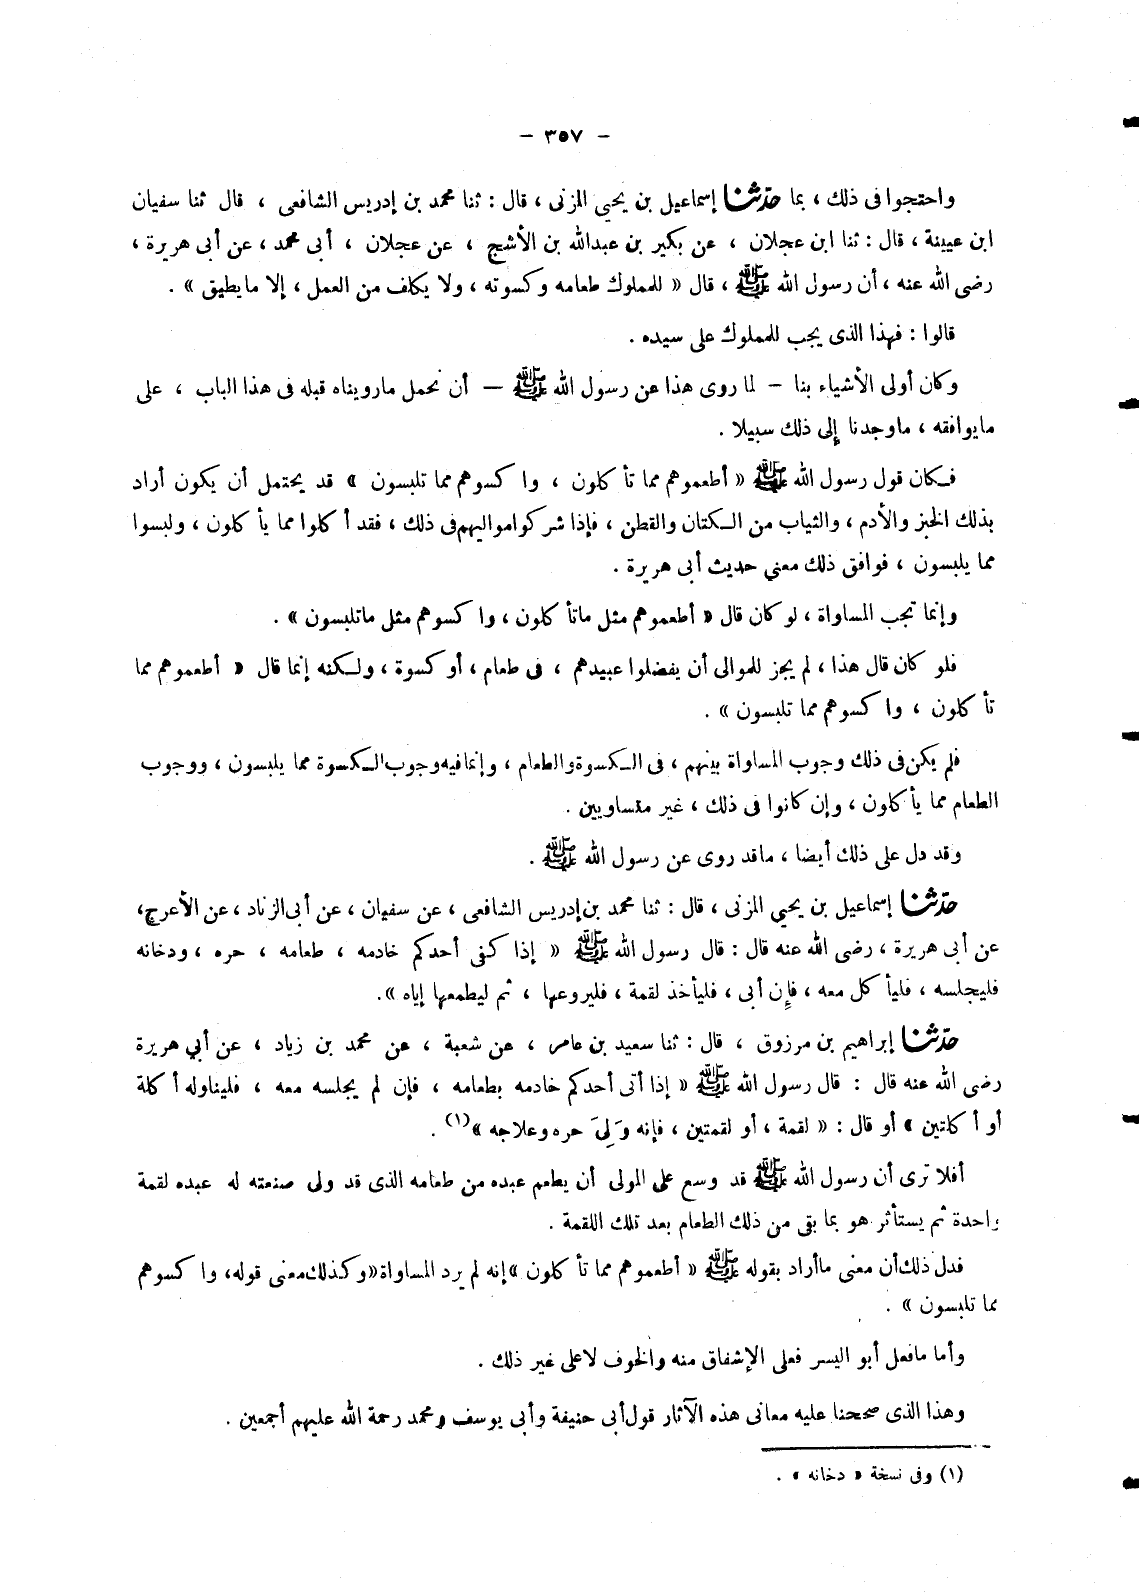 — ٣٥٧ —
واحتجوا فى ذلك ، بما حدّثنا إسماعيل بن يحيى المزنى ، قال : ثنا محمد بن إدريس الشافعى ، قال ثنا سفيان
ابن عيينة ، قال : ثنا ابن عجلان ، عن بكير بن عبدالله بن الأشج ، عن عجلان ، أبى محمد ، عن أبى هريرة ،
رضى الله عنه ، أن رسول الله ﷺ ، قال « للمملوك طعامه وكسوته ، ولا يكلف من العمل ، إلا مايطيق » .
قالوا : فهذا الذى يجب للمملوك على سيده .
وكان أولى الأشياء بنا – لما روى هذا عن رسول الله ﷺ – أن نحمل مارويناه قبله فى هذا الباب ، على
مايوافقه ، ماوجدنا إلى ذلك سبيلا .
فكان قول رسول الله ﷺ « أطعموهم مما تأكلون ، واكسوهم مما تلبسون » قد يحتمل أن يكون أراد
بذلك الخبز والأدم ، والثياب من الكتان والقطن ، فإذا شركوامواليهم‌فى ذلك ، فقد أكلوا مما يأكلون ، ولبسوا
مما يلبسون ، فوافق ذلك معنى حديث أبى هريرة .
وإنما تجب المساواة ، لو كان قال « أطعموهم مثل ماتأكلون ، واكسوهم مثل ماتلبسون » .
فلو كان قال هذا ، لم يجز للموالى أن يفضلوا عبيدهم ، فى طعام ، أو كسوة ، ولكنه إنما قال « أطعموهم مما
تأكلون ، واكسوهم مما تلبسون » .
فلم يكن‌فى ذلك وجوب المساواة بينهم ، فى الكسوة‌والطعام ، وإنمافيه‌وجوب الكسوة مما يلبسون ، ووجوب
الطعام مما يأكلون ، وإن كانوا فى ذلك ، غير متساويين .
وقد دل على ذلك أيضا ، ماقد روى عن رسول الله ﷺ .
حدّثنا إسماعيل بن يحيى المزنى ، قال : ثنا محمد بن‌إدريس الشافعى ، عن سفيان ، عن أبى‌الزناد ، عن الأعرج،
عن أبى هريرة ، رضى الله عنه قال : قال رسول الله ﷺ « إذا كفى أحدكم خادمه ، طعامه ، حره ، ودخانه
فليجلسه ، فليأكل معه ، فإن أبى ، فليأخذ لقمة ، فليروعها ، ثم ليطعمها إياه ».
حدّثنا إبراهيم بن مرزوق ، قال : ثنا سعيد بن عامر ، عن شعبة ، عن محمد بن زياد ، عن أبي هريرة
رضى الله عنه قال : قال رسول الله ﷺ « إذا أتى أحدكم خادمه بطعامه ، فإن لم يجلسه معه ، فليناوله أكلة
أو أكلتين » أو قال : « لقمة ، أو لقمتين ، فإنه وَلِىَ حره وعلاجه »(١) .
أفلا ترى أن رسول الله ﷺ قد وسع على المولى أن يطعم عبده من طعامه الذى قد ولى صنعته له عبده لقمة
واحدة ثم يستأثر هو بما بقى من ذلك الطعام بعد تلك اللقمة .
فدل ذلك‌أن معنى ماأراد بقوله ﷺ « أطعموهم مما تأكلون »إنه لم يرد المساواة«وكذلك‌معنى قوله، واكسوهم
مما تلبسون » .
وأما مافعل أبو اليسر فعلى الإشفاق منه والخوف لاعلى غير ذلك .
وهذا الذى صححنا عليه معانى هذه الآثار قول‌أبى حنيفة وأبى يوسف ومحمد رحمة الله عليهم أجمعين .
(١) وفى نسخة « دخانه » .